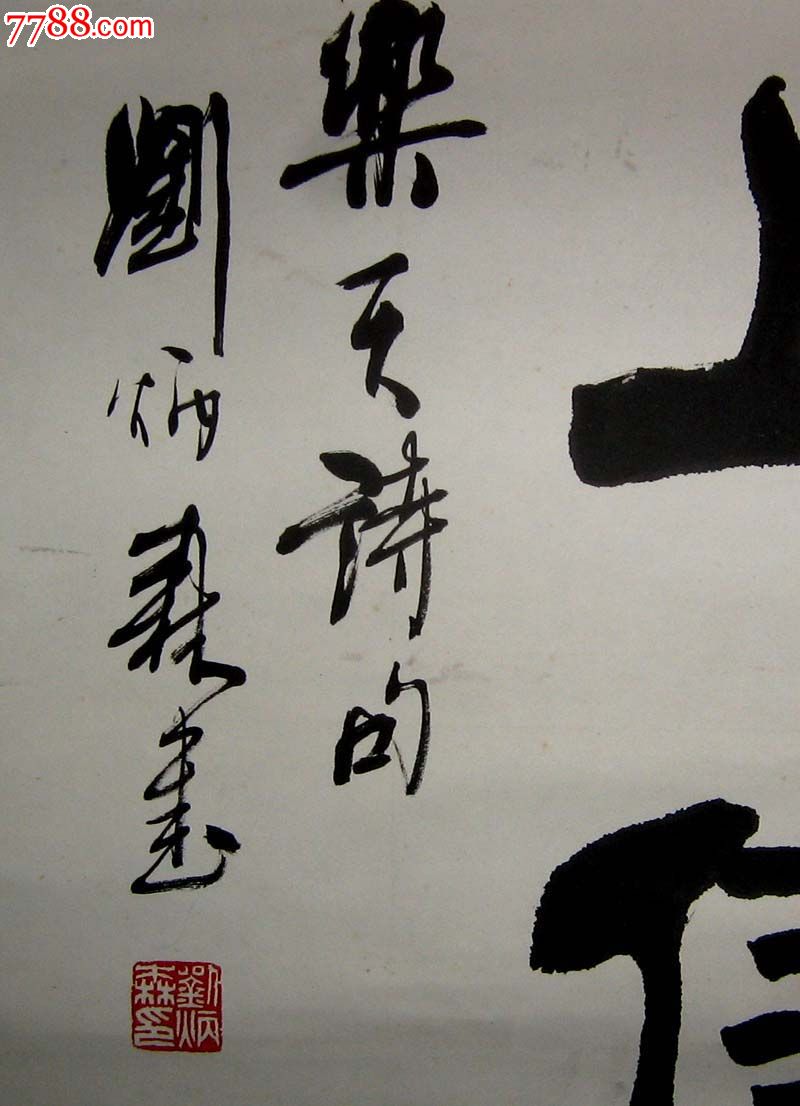 樂天詩句
劉炳森書
劉炳森印
7788.com